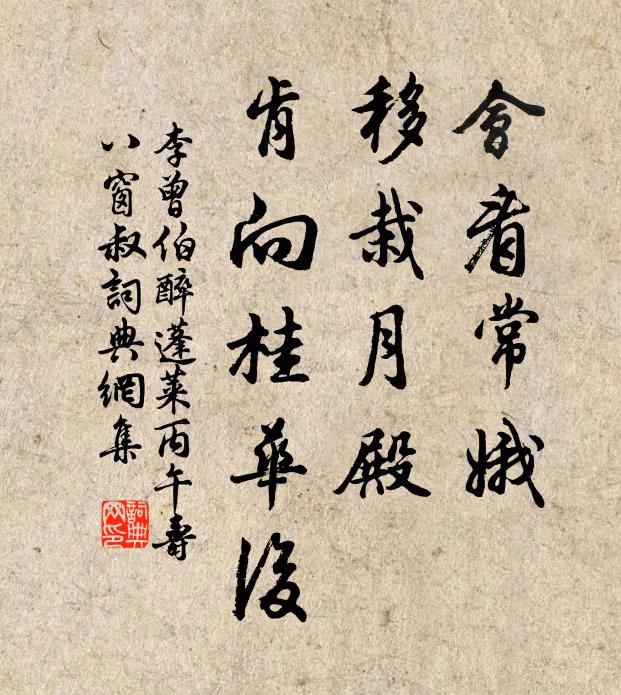 會看常娥
移栽月殿
肯向桂華後
李曾伯醉蓬萊丙午壽
八窗叔詞典網集
詞典
网印